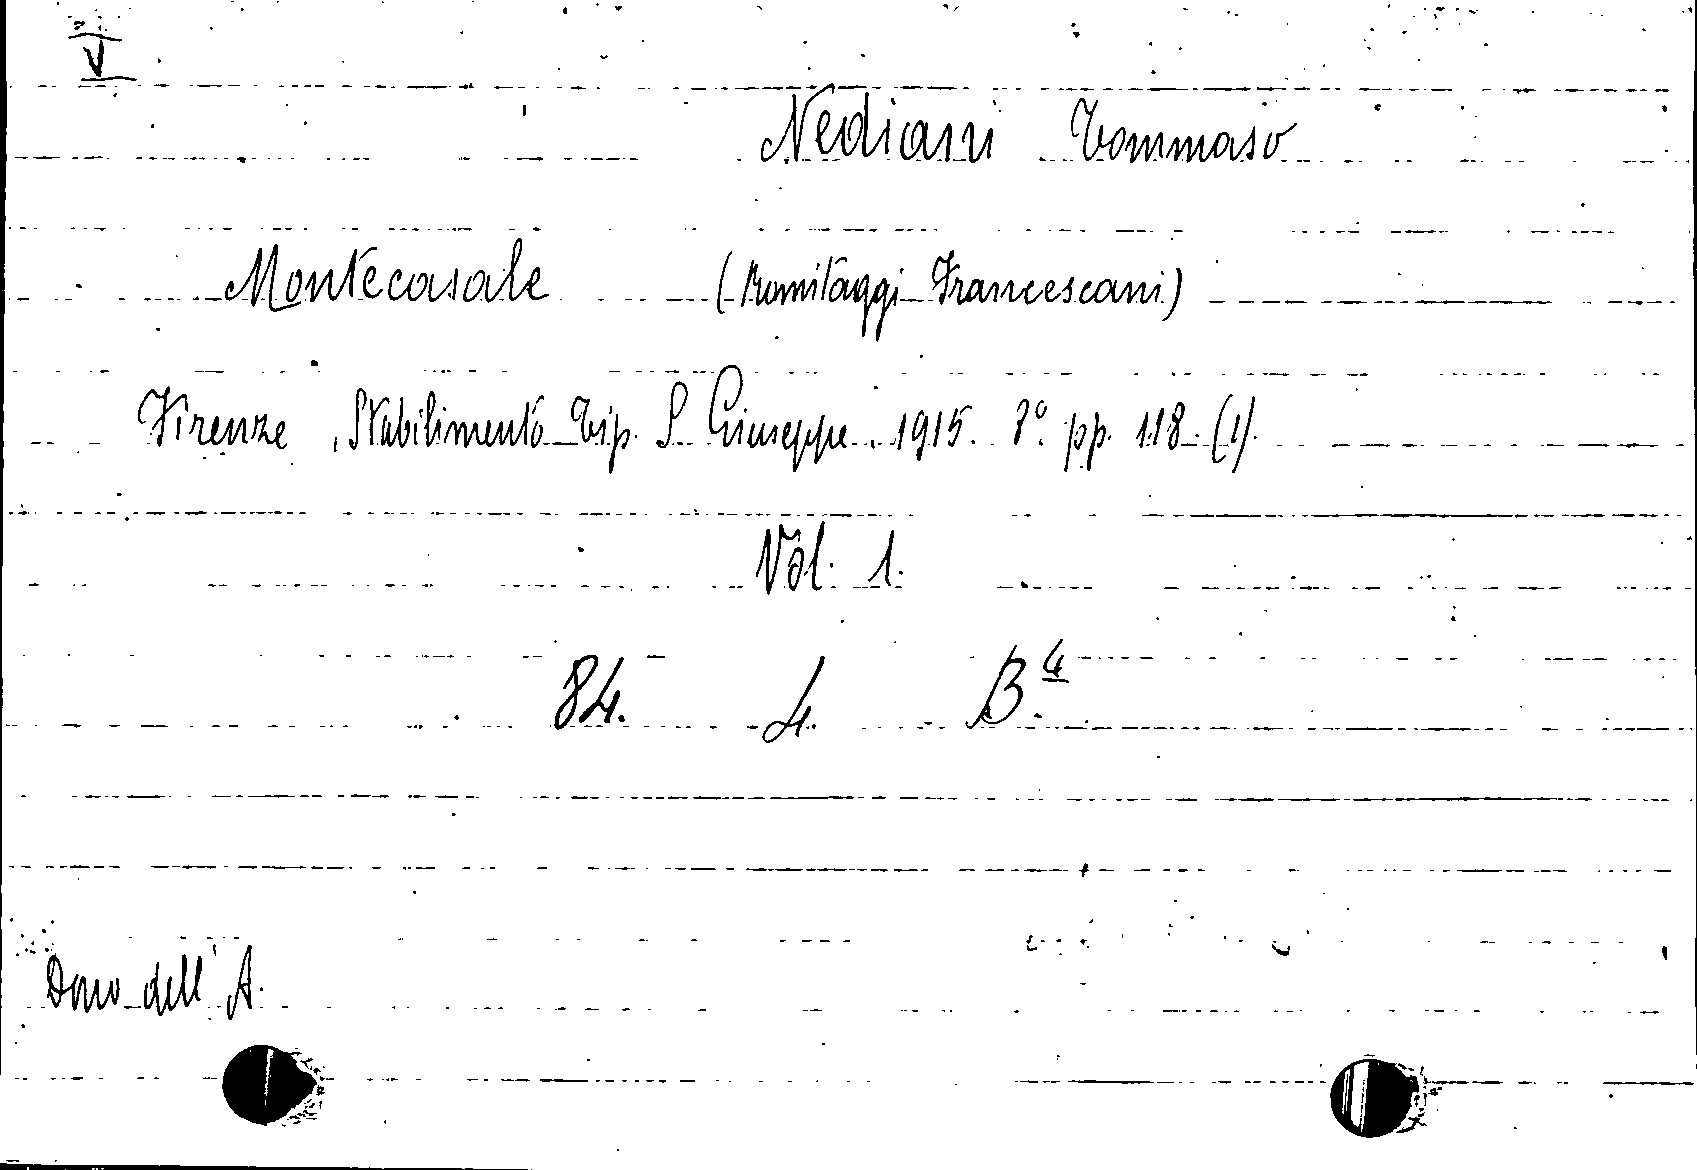 V
Nediani Tommaso
Montecasale (Romitaggi Francescani)
Firenze, Stabilimento Tip. S. Giuseppe. 1915. 8° pp. 118. (1).
Vol. 1.
84. 4. B.4
Dono dell' A.